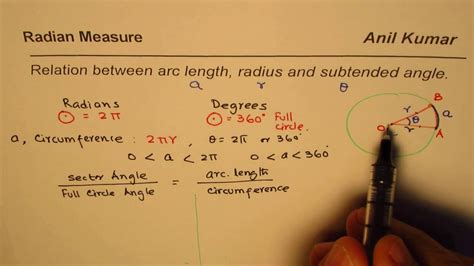 Radian Measure Anil Kumar
Relation between arc length, radius and subtended angle.
a r θ
Radians Degrees
⊙ = 2π ⊙ = 360° Full Circle.
a, Circumference : 2πr, θ = 2π or 360°
0 < a < 2π 0 < a < 360°
sector Angle / Full Circle Angle = arc. length / circumference
B
r
O θ a
r A